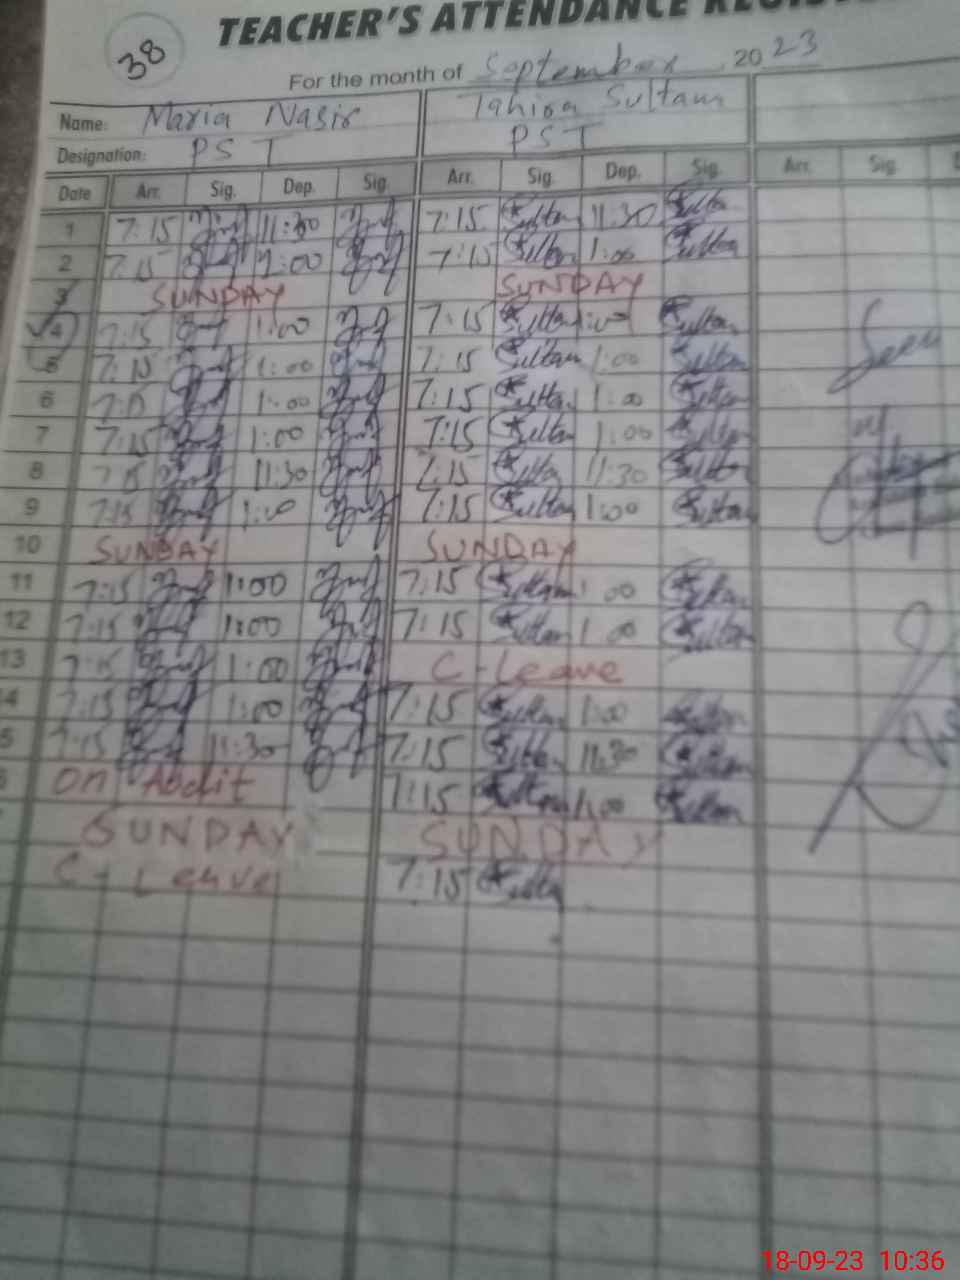 38
TEACHER'S ATTENDANCE
For the month of September 2023
Name: Maria Nasir Tahira Sultan
Designation: PST PST
Date Arr. Sig. Dep. Sig. Arr. Sig. Dep. Sig. Arr. Sig.
1 7:15 11:30 7:15 Sultan 11:30 Sultan
2 7:15 1:00 7:15 Sultan 1:00 Sultan
3 SUNDAY SUNDAY
4 7:15 1:00 7:15 Sultan 1:00 Sultan
5 7:15 1:00 7:15 Sultan 1:00 Sultan Seen
6 7:15 1:00 7:15 Sultan 1:00 Sultan
7 7:15 1:00 7:15 Sultan 1:00 Sultan
8 7:15 11:30 7:15 Sultan 11:30 Sultan
9 7:15 1:00 7:15 Sultan 1:00 Sultan
10 SUNDAY SUNDAY
11 7:15 1:00 7:15 Sultan 1:00 Sultan
12 7:15 1:00 7:15 Sultan 1:00 Sultan
13 7:15 1:00 C-Leave
14 7:15 1:00 7:15 Sultan 1:00 Sultan
5 7:15 11:30 7:15 Sultan 11:30 Sultan
On Abdit 7:15 Sultan 1:00 Sultan
SUNDAY SUNDAY
C-Leave 7:15 Sultan
18-09-23 10:36